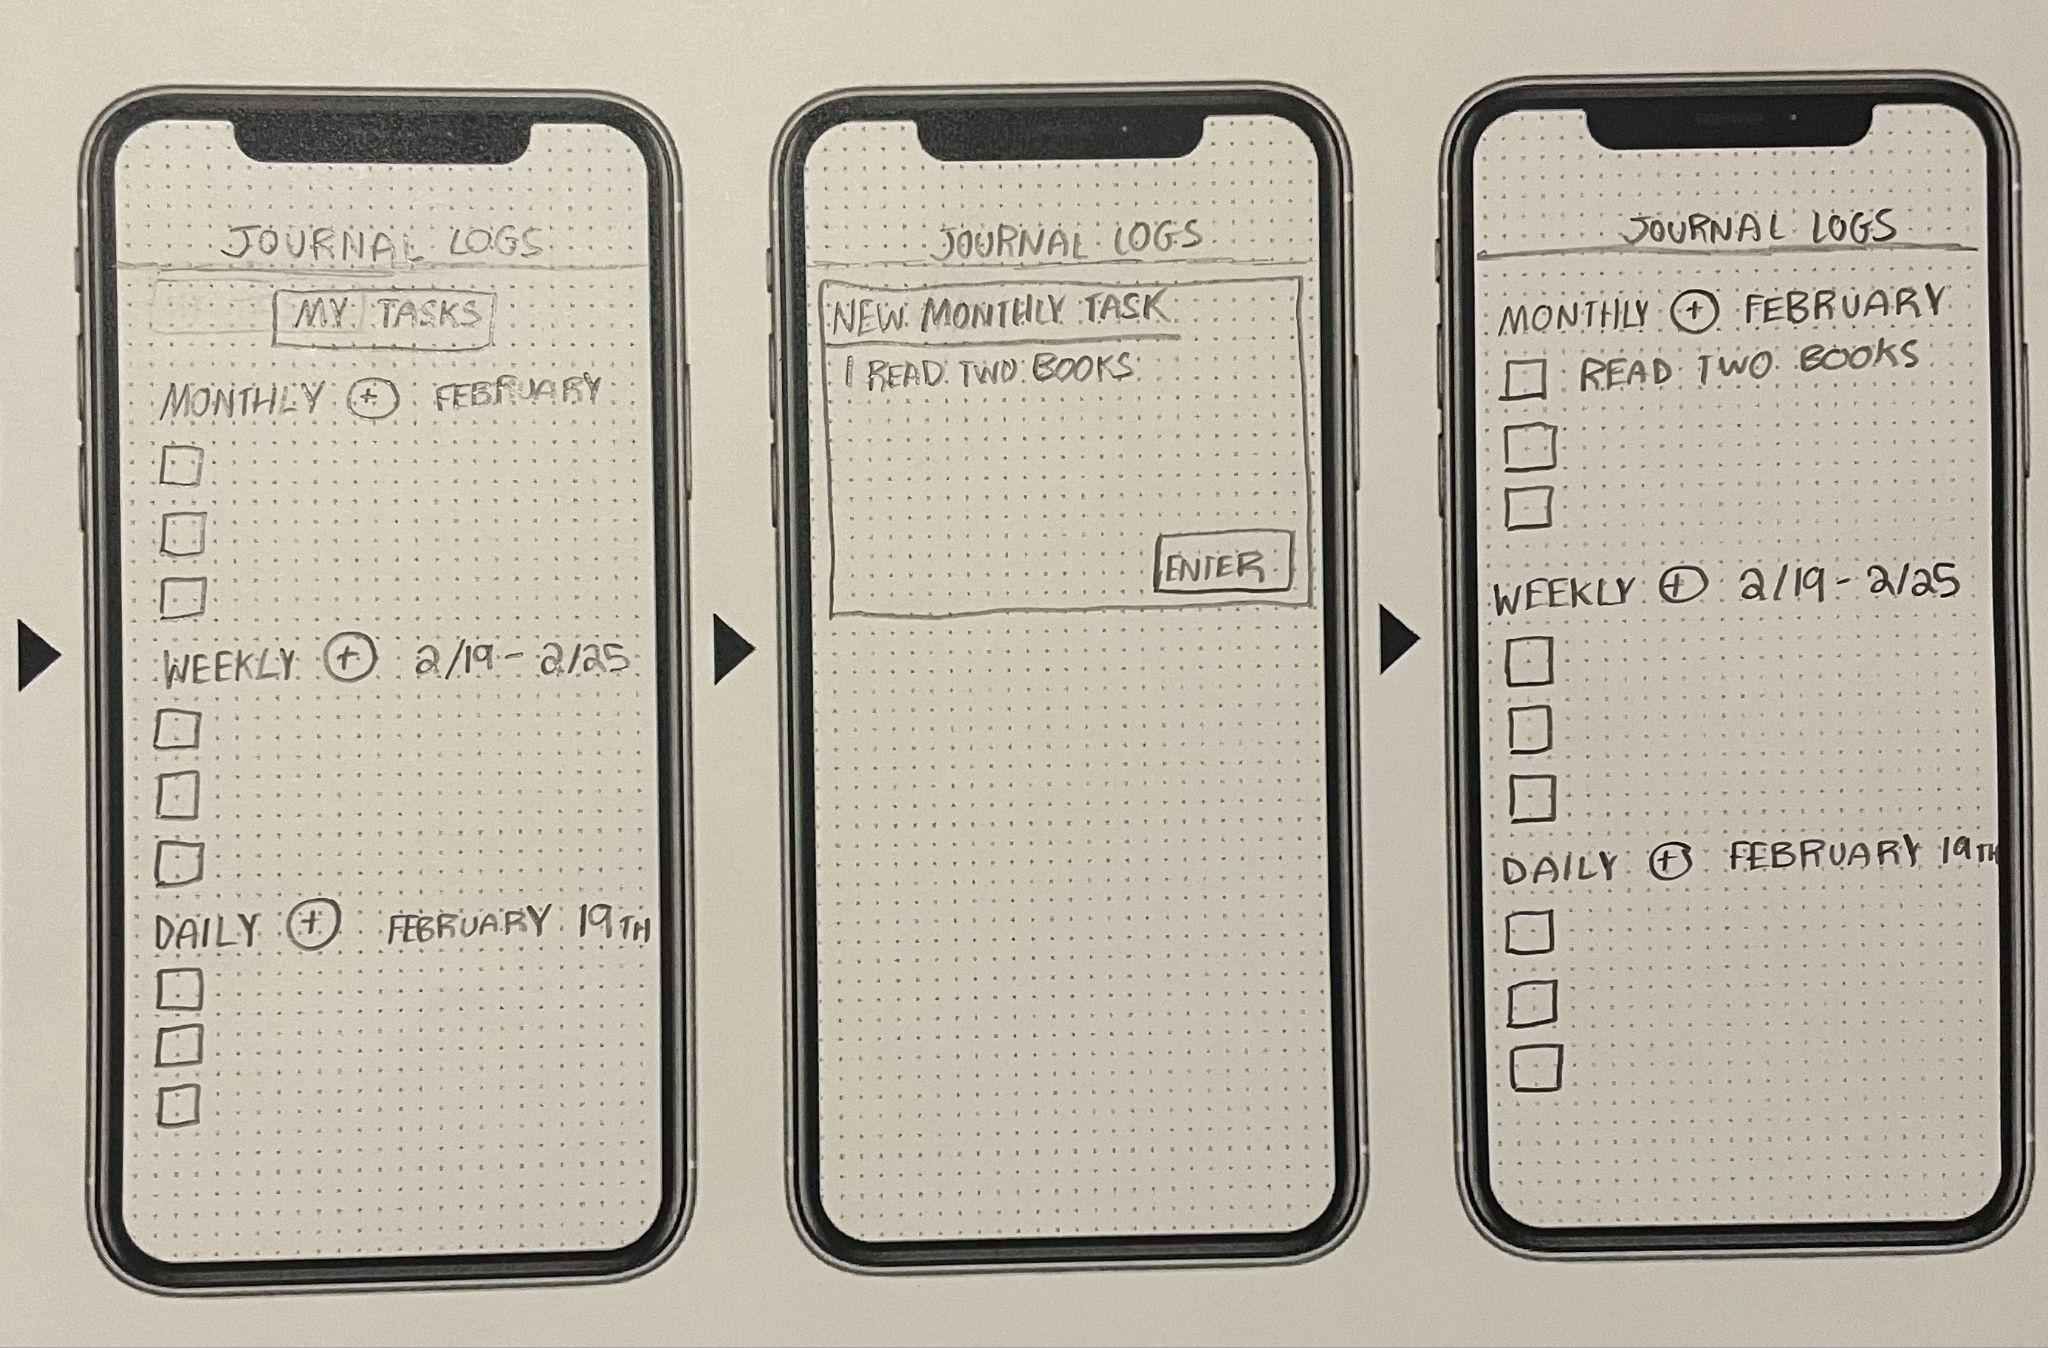 JOURNAL LOGS
MY TASKS
MONTHLY + FEBRUARY
WEEKLY + 2/19 - 2/25
DAILY + FEBRUARY 19TH
JOURNAL LOGS
NEW MONTHLY TASK
| READ TWO BOOKS
ENTER
JOURNAL LOGS
MONTHLY + FEBRUARY
READ TWO BOOKS
WEEKLY + 2/19 - 2/25
DAILY + FEBRUARY 19TH